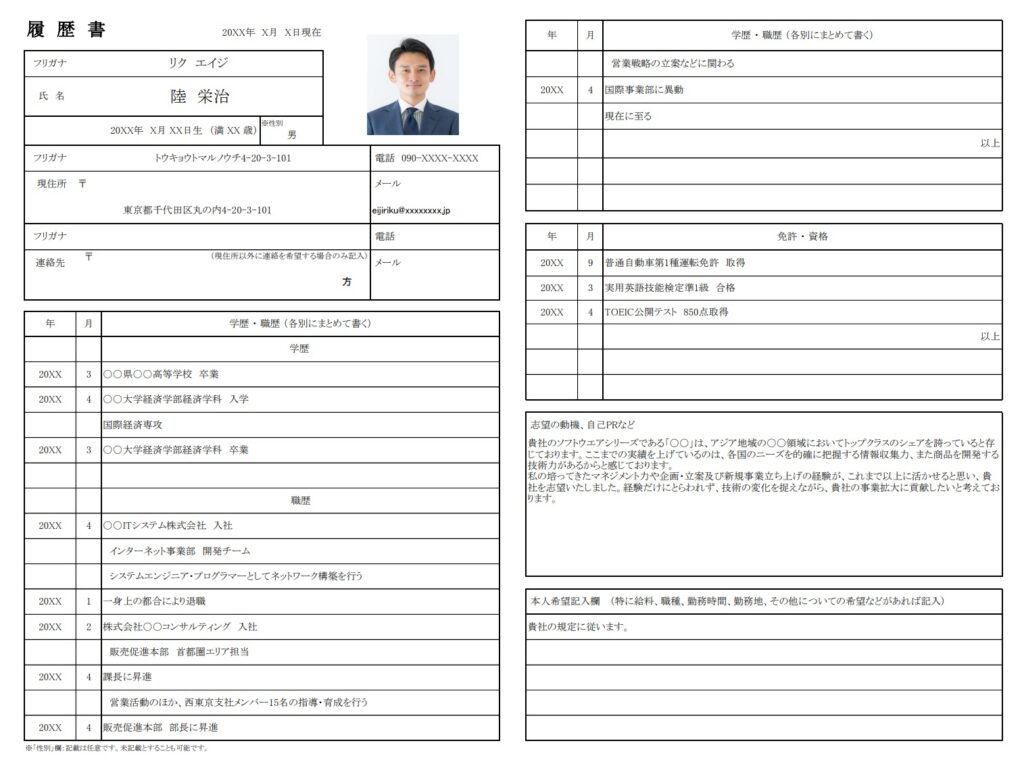 履 歴 書
20XX年 X月 X日現在
フリガナ リク エイジ
氏 名 陸 栄治
20XX年 X月 XX日生 (満 XX 歳)
※性別
男
フリガナ トウキョウトマルノウチ4-20-3-101
電話 090-XXXX-XXXX
現住所 〒
メール
東京都千代田区丸の内4-20-3-101
eijiriku@xxxxxxxx.jp
フリガナ
電話
連絡先 〒 (現住所以外に連絡を希望する場合のみ記入)
メール
方
年 月 学歴・職歴 (各別にまとめて書く)
学歴
20XX 3 〇〇県〇〇高等学校 卒業
20XX 4 〇〇大学経済学部経済学科 入学
国際経済専攻
20XX 3 〇〇大学経済学部経済学科 卒業
職歴
20XX 4 〇〇ITシステム株式会社 入社
インターネット事業部 開発チーム
システムエンジニア・プログラマーとしてネットワーク構築を行う
20XX 1 一身上の都合により退職
20XX 2 株式会社〇〇コンサルティング 入社
販売促進本部 首都圏エリア担当
20XX 4 課長に昇進
営業活動のほか、西東京支社メンバー15名の指導・育成を行う
20XX 4 販売促進本部 部長に昇進
※「性別」欄:記載は任意です。未記載とすることも可能です。
年 月 学歴・職歴 (各別にまとめて書く)
営業戦略の立案などに関わる
20XX 4 国際事業部に異動
現在に至る
以上
年 月 免許・資格
20XX 9 普通自動車第1種運転免許 取得
20XX 3 実用英語技能検定準1級 合格
20XX 4 TOEIC公開テスト 850点取得
以上
志望の動機、自己PRなど
貴社のソフトウエアシリーズである「〇〇」は、アジア地域の〇〇領域においてトップクラスのシェアを誇っていると存
じております。ここまでの実績を上げているのは、各国のニーズを的確に把握する情報収集力、また商品を開発する
技術力があるからと感じております。
私の培ってきたマネジメント力や企画・立案及び新規事業立ち上げの経験が、これまで以上に活かせると思い、貴
社を志望いたしました。経験だけにとらわれず、技術の変化を捉えながら、貴社の事業拡大に貢献したいと考えてお
ります。
本人希望記入欄 (特に給料、職種、勤務時間、勤務地、その他についての希望などがあれば記入)
貴社の規定に従います。